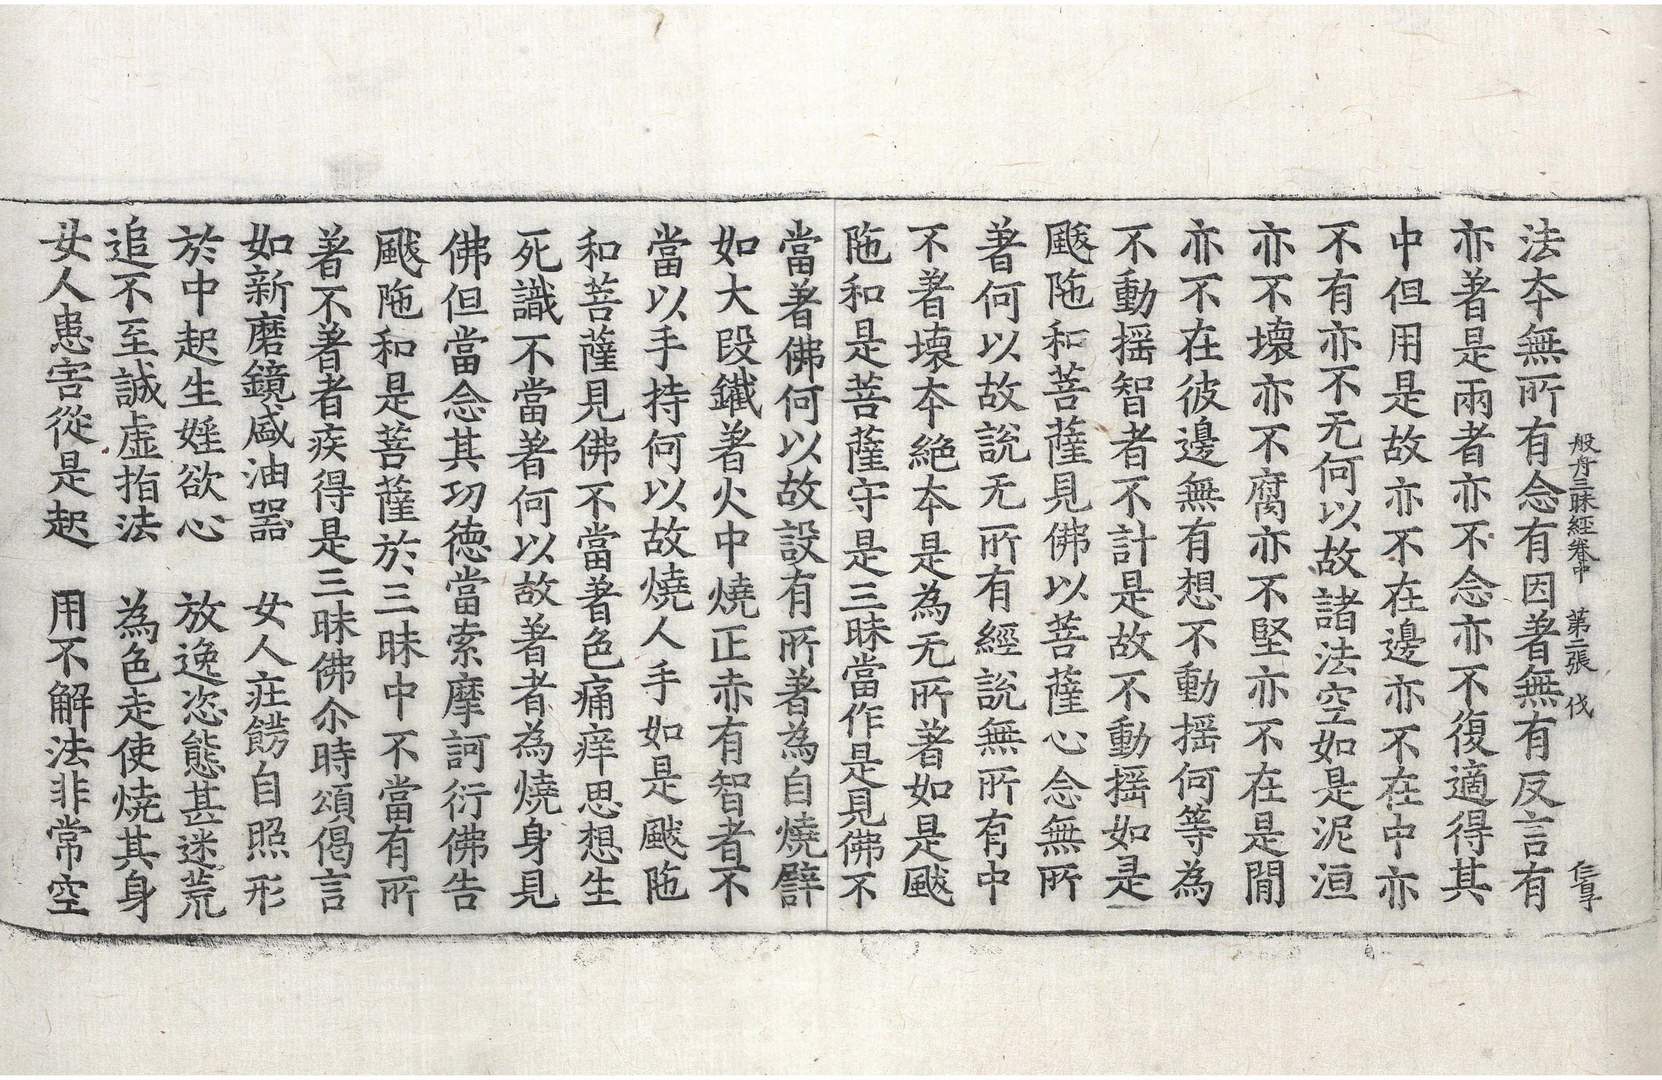 般舟三昧經卷中 第二張 伐
法本無所有念有因著無有反言有
亦著是兩者亦不念亦不復適得其
中但用是故亦不在邊亦不在中亦
不有亦不无何以故諸法空如是泥洹
亦不壞亦不腐亦不堅亦不在是閒
亦不在彼邊無有想不動摇何等為
不動摇智者不計是故不動摇如是
颰陁和菩薩見佛以菩薩心念無所
著何以故說无所有經說無所有中
不著壞本絕本是為无所著如是颰
陁和是菩薩守是三昧當作是見佛不
當著佛何以故設有所著為自燒譬
如大段鐵著火中燒正赤有智者不
當以手持何以故燒人手如是颰陁
和菩薩見佛不當著色痛痒思想生
死識不當著何以故著者為燒身見
佛但當念其功德當索摩訶衍佛告
颰陁和是菩薩於三昧中不當有所
著不著者疾得是三昧佛尒時頌偈言
如新磨鏡盛油器 女人莊餝自照形
於中起生婬欲心 放逸恣態甚迷荒
追不至誠虛捐法 為色走使燒其身
女人患害從是起 用不解法非常空